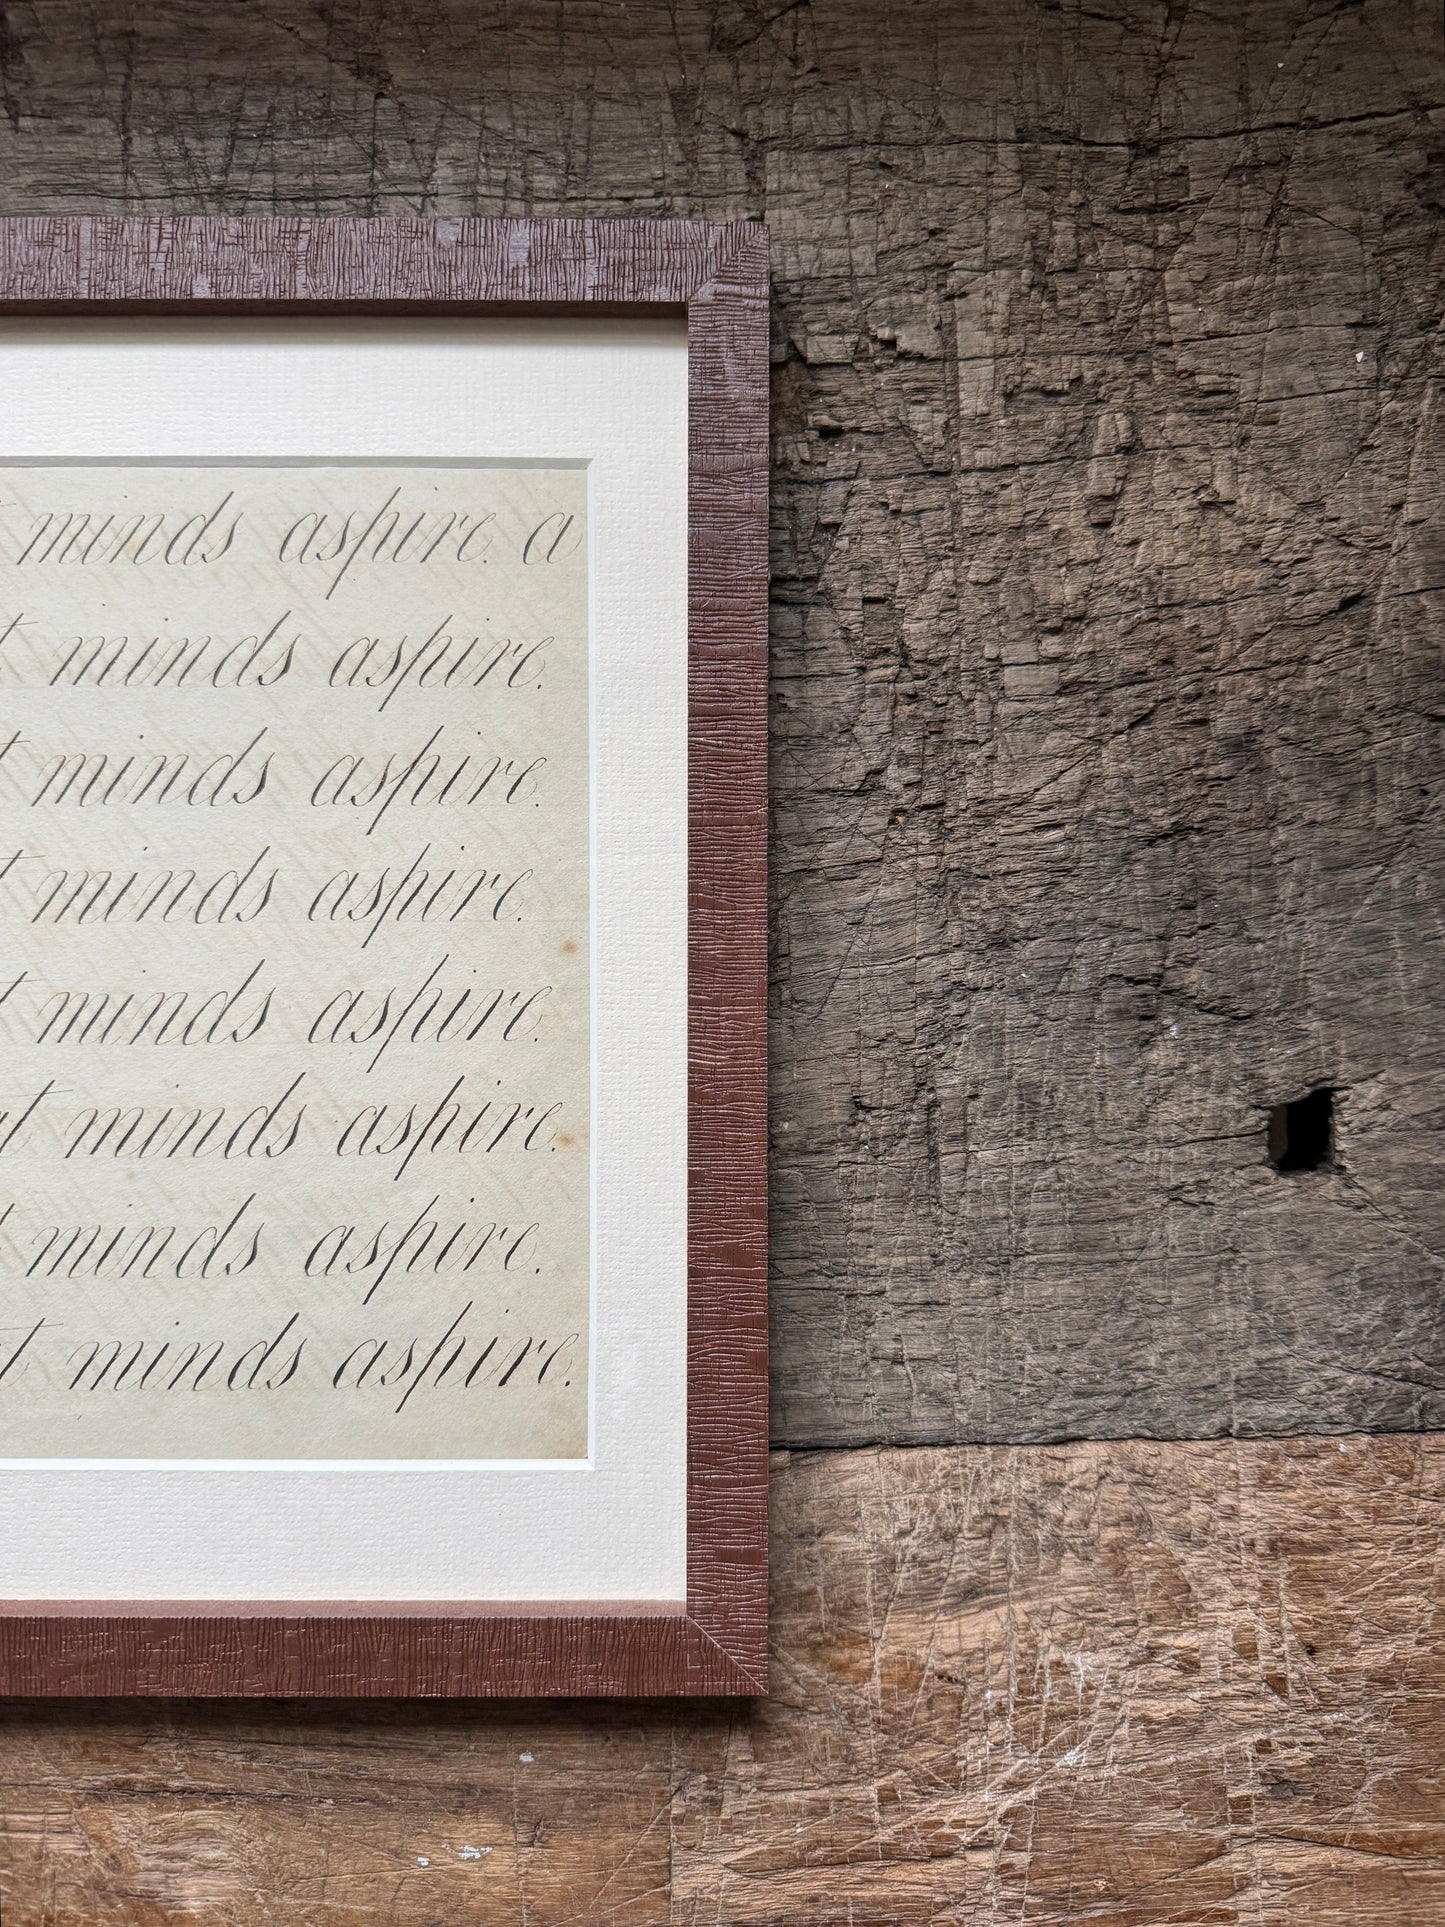 t minds aspire. a
t minds aspire.
t minds aspire.
t minds aspire.
t minds aspire.
at minds aspire.
t minds aspire.
t minds aspire.